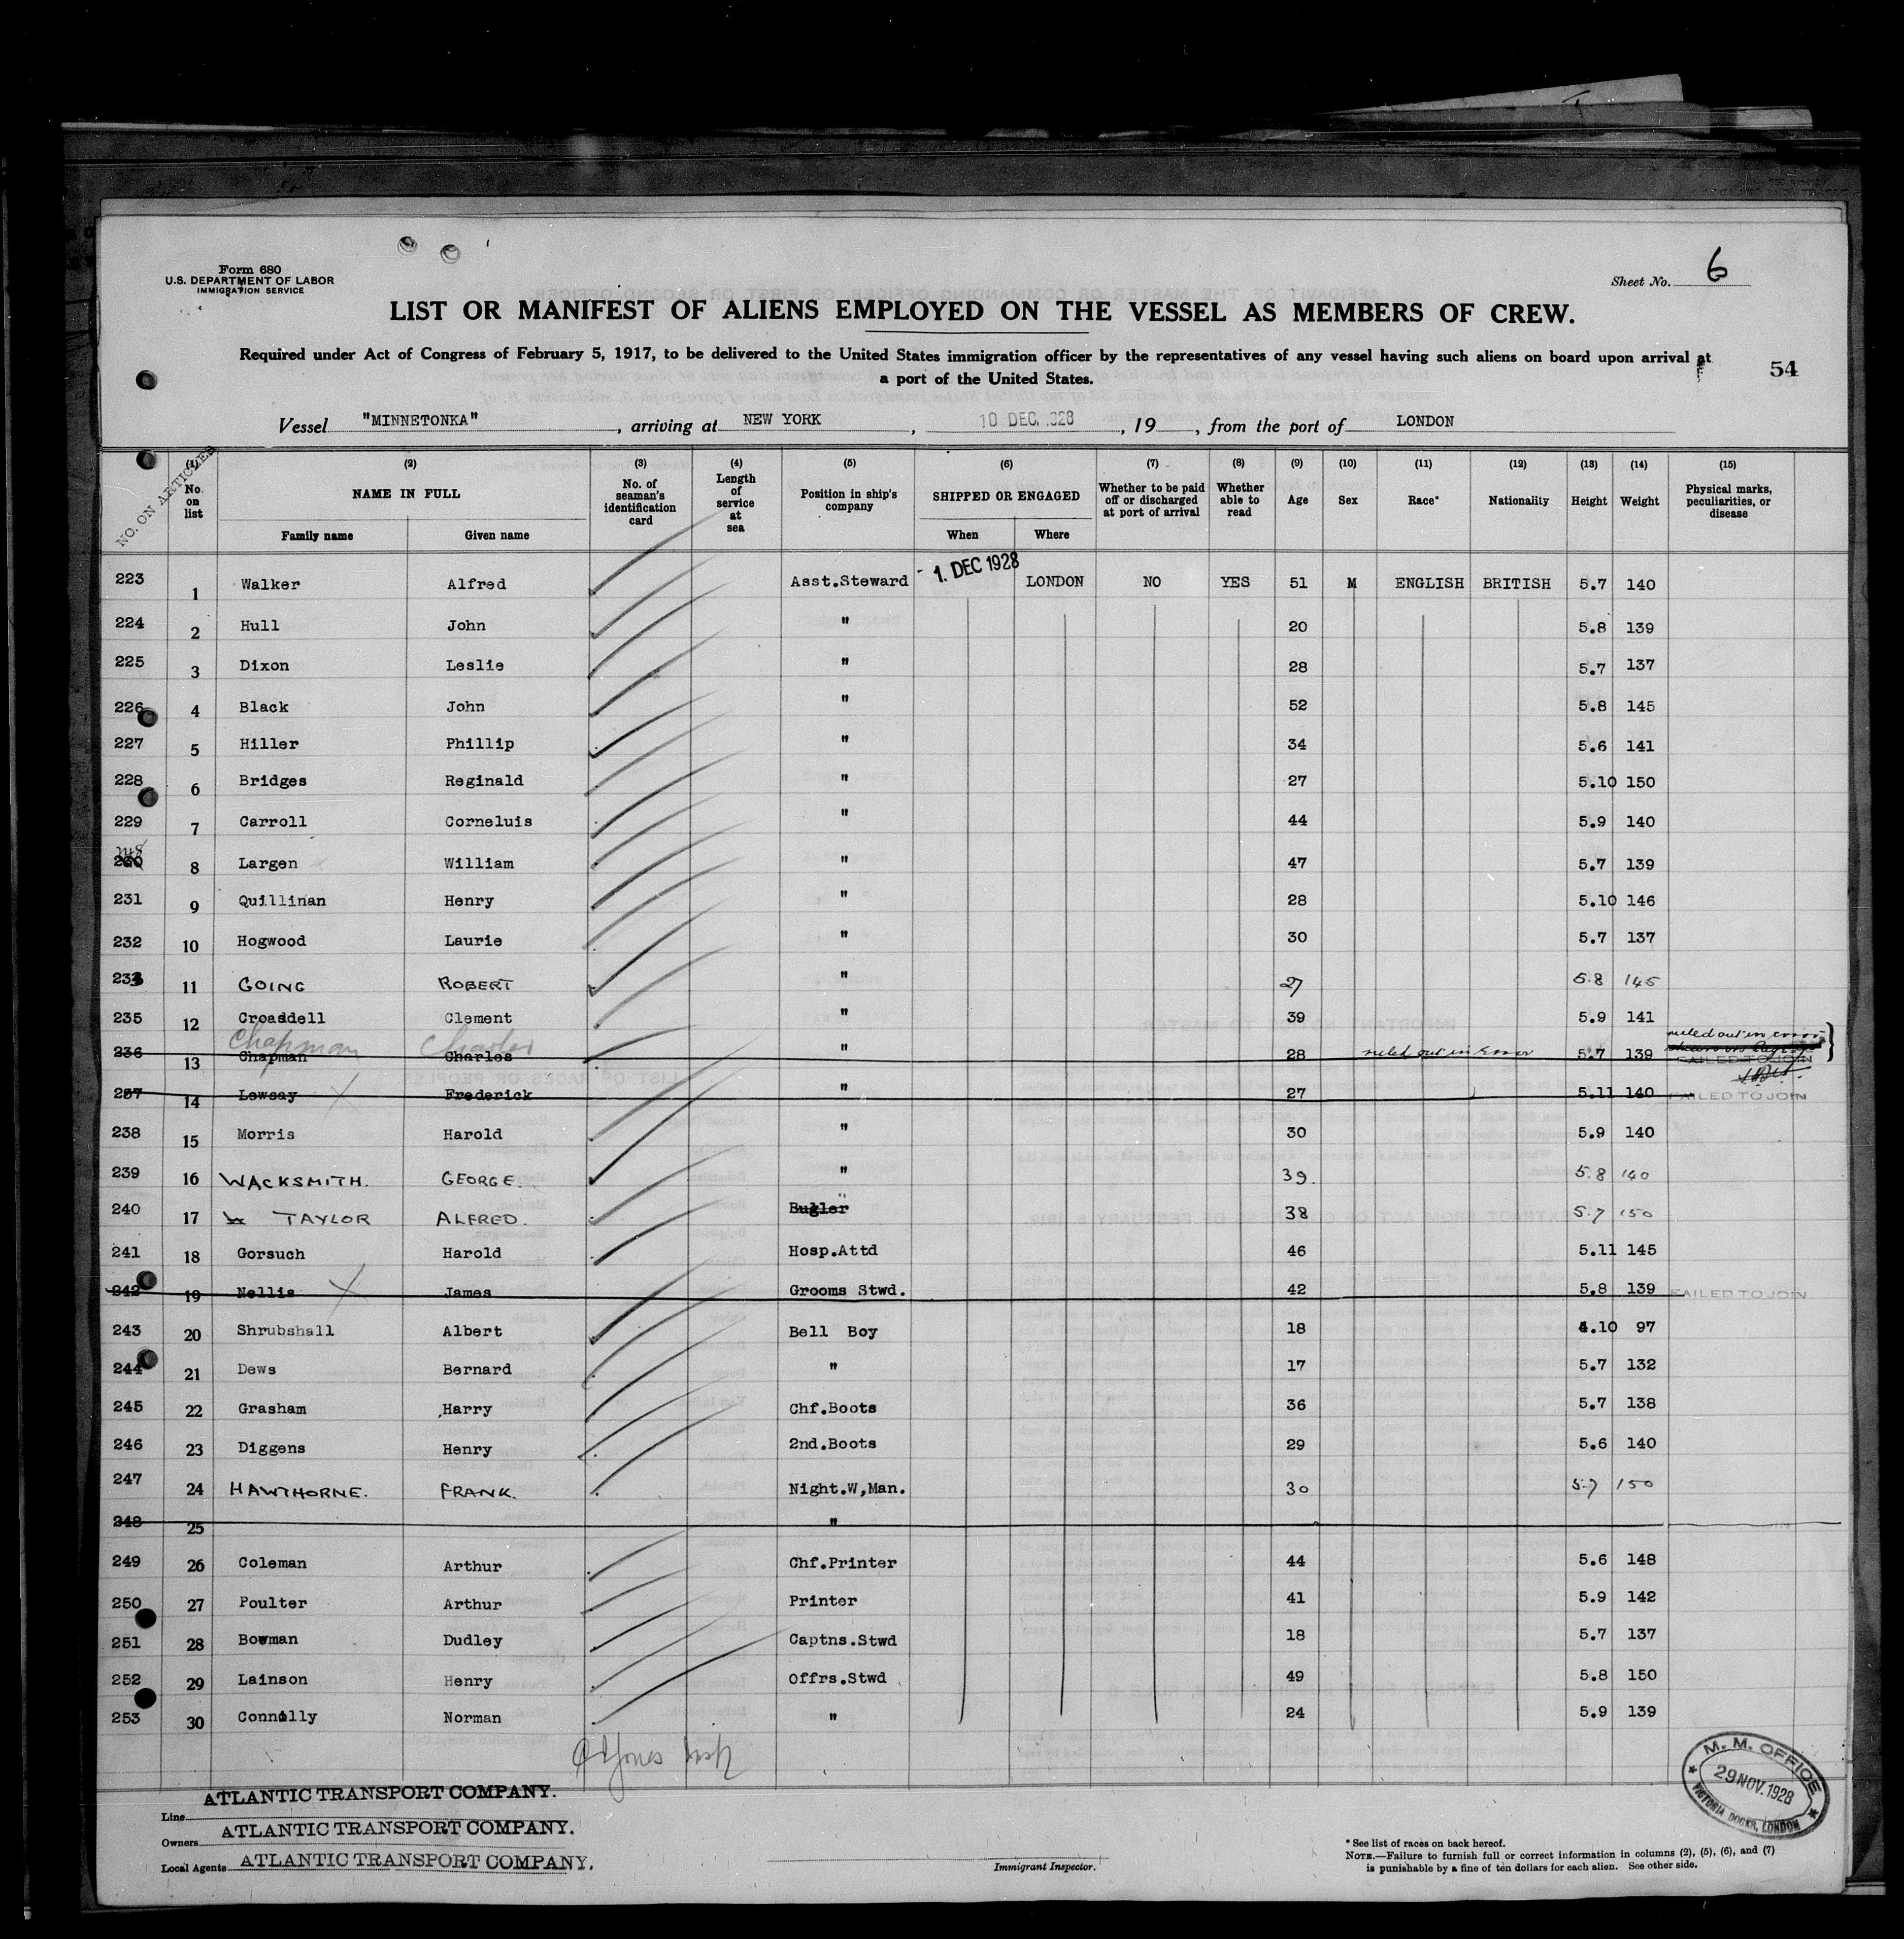 Form 680
U.S. DEPARTMENT OF LABOR
IMMIGRATION SERVICE
Sheet No. 6
LIST OR MANIFEST OF ALIENS EMPLOYED ON THE VESSEL AS MEMBERS OF CREW.
Required under Act of Congress of February 5, 1917, to be delivered to the United States immigration officer by the representatives of any vessel having such aliens on board upon arrival at
a port of the United States.
54
Vessel "MINNETONKA", arriving at NEW YORK, 10 DEC. 1928, 19 , from the port of LONDON
NO. ON ARTICLES
(1) (2) (3) (4) (5) (6) (7) (8) (9) (10) (11) (12) (13) (14) (15)
No. on list NAME IN FULL No. of seaman's identification card Length of service at sea Position in ship's company SHIPPED OR ENGAGED Whether to be paid off or discharged at port of arrival Whether able to read Age Sex Race* Nationality Height Weight Physical marks, peculiarities, or disease
Family name Given name When Where
223 1 Walker Alfred Asst.Steward - 1. DEC 1928 LONDON NO YES 51 M ENGLISH BRITISH 5.7 140
224 2 Hull John " 20 5.8 139
225 3 Dixon Leslie " 28 5.7 137
226 4 Black John " 52 5.8 145
227 5 Hiller Phillip " 34 5.6 141
228 6 Bridges Reginald " 27 5.10 150
229 7 Carroll Corneluis " 44 5.9 140
230 8 Largen William " 47 5.7 139
231 9 Quillinan Henry " 28 5.10 146
232 10 Hogwood Laurie " 30 5.7 137
233 11 GOING ROBERT " 27 5.8 145
235 12 Croaddell Clement " 39 5.9 141
Chapman Charles ruled out in error
236 13 Chapman Charles " 28 ruled out in Error 5.7 139 FAILED TO JOIN
237 14 Lowsay Frederick " 27 5.11 140 FAILED TO JOIN
238 15 Morris Harold " 30 5.9 140
239 16 WACKSMITH. GEORGE. " 39. 5.8 140
240 17 TAYLOR ALFRED. Bugler " 38 5.7 150
241 18 Gorsuch Harold Hosp.Attd 46 5.11 145
242 19 Nellis James Grooms Stwd. 42 5.8 139 FAILED TO JOIN
243 20 Shrubshall Albert Bell Boy 18 4.10 97
244 21 Dews Bernard " 17 5.7 132
245 22 Grasham Harry Chf.Boots 36 5.7 138
246 23 Diggens Henry 2nd.Boots 29 5.6 140
247 24 HAWTHORNE. FRANK. Night.W,Man. 30 5.7 150
248 25 "
249 26 Coleman Arthur Chf.Printer 44 5.6 148
250 27 Poulter Arthur Printer 41 5.9 142
251 28 Bowman Dudley Captns.Stwd 18 5.7 137
252 29 Lainson Henry Offrs.Stwd 49 5.8 150
253 30 Connolly Norman " 24 5.9 139
Jones Insp
Line ATLANTIC TRANSPORT COMPANY.
Owners ATLANTIC TRANSPORT COMPANY.
Local Agents ATLANTIC TRANSPORT COMPANY.
Immigrant Inspector.
* See list of races on back hereof.
NOTE.—Failure to furnish full or correct information in columns (2), (5), (6), and (7)
is punishable by a fine of ten dollars for each alien. See other side.
M. M. OFFICE
29 NOV. 1928
VICTORIA DOCKS, LONDON